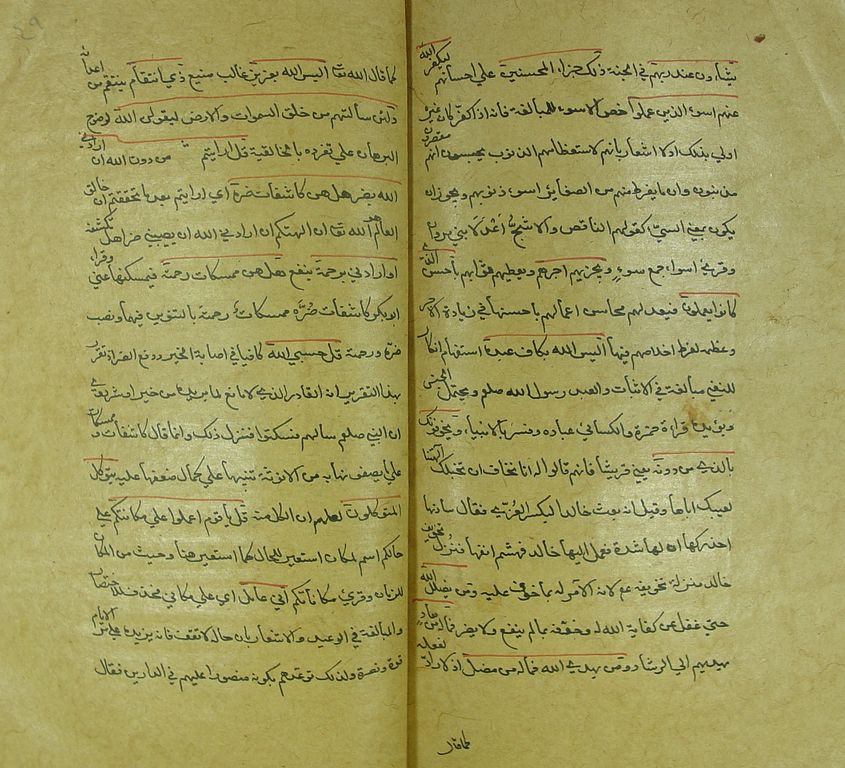 يشاؤن عند ربهم في الجنة ذلك جزاء المحسنين علي احسانهم ليكفر الله
عنهم اسوء الذي عملوا خص الاسوء للمبالغة فانه اذا كفر كان غيره
اولي بذلك او للاشعار بانهم لاستعظامهم الذنوب يحسبون انهم مقصرون
مذنبون وان ما يفرط منهم من الصغاير اسوء ذنوبهم ويجوز ان
يكون بمعني السيئ كقولهم الناقص والاشج اعدلا بني مروان
وقرئ اسواء جمع سوء ويجزيهم اجرهم ويعطيهم ثوابهم باحسن الذي
كانوا يعملون فيعد لهم محاسن اعمالهم باحسنها في زيادة الاجر
وعظمه لفرط اخلاصهم فيها اليس الله بكاف عبده استفهام انكار
للنفي مبالغة في الاثبات والعبد رسول الله صلعم ويحتمل الجنس
ويؤيده قراءة حمزة والكسائي عباده وفسر بالانبياء ويخوفونك
بالذين من دونه يعني قريشا فانهم قالوا له انا نخاف ان تخبلك آلهتنا
لعيبك اياها وقيل انه بعث خالدا ليكسر العزي فقال سادنها
احذركها ان لها شدة فعمد اليها خالد فهشم انفها فنزل تخويف
خالد منزلة تخويفه عم لانه الآمر له بما خوف عليه ومن يضلل الله
حتي غفل عن كفاية الله له وخوفه بما لم ينفع ولا يضر فما له من هاد
يهديهم الي الرشاد ومن يهدي الله فما له من مضل اذ لا راد لفعله
كما قال
كما قال الله تعا اليس الله بعزيز غالب منيع ذي انتقام ينتقم من اعدائه
ولئن سالتهم من خلق السموات والارض ليقولن الله لوضوح
البرهان علي تفرده بالخالقية قل ارايتم ما تدعون من دون الله ان ارادني
الله بضر هل هن كاشفات ضره اي ارايتم بعد ما تحققتم ان خالق
العالم هو الله تعا ان آلهتكم ان اراد بي الله ان يصيبني ضرا هل تكشفه
او ارادني برحمة بنفع هل هن ممسكات رحمته فيمسكنها عني وقرأ
ابو بكر كاشفات ضره ممسكات رحمته بالتنوين فيهما ونصب
ضره ورحمته قل حسبي الله كافيا في اصابة الخير ودفع الضر اذ تقرر
بهذا التقرير انه القادر الذي لا مانع لما يريده من خير او شر روي
ان النبي صلعم سالهم فسكتوا فنزل ذلك وانما قال كاشفات وممسكات
علي ما يصفونها به من الانوثة تنبيها علي كمال ضعفها عليه يتوكل
المتوكلون لعلمهم ان الكل منه قل يا قوم اعملوا علي مكانتكم علي
حالكم اسم للمكان استعير للحال كما استعير هنا وحيث من المكان
للزمان وقرئ مكاناتكم اني عامل اي علي مكانتي فحذف للاختصار
والمبالغة في الوعيد والاشعار بان حاله لا تقف فانه يزيده علي مر الايام
قوة ونصرة ولذلك توعدهم بكونه منصورا عليهم في الدارين فقال